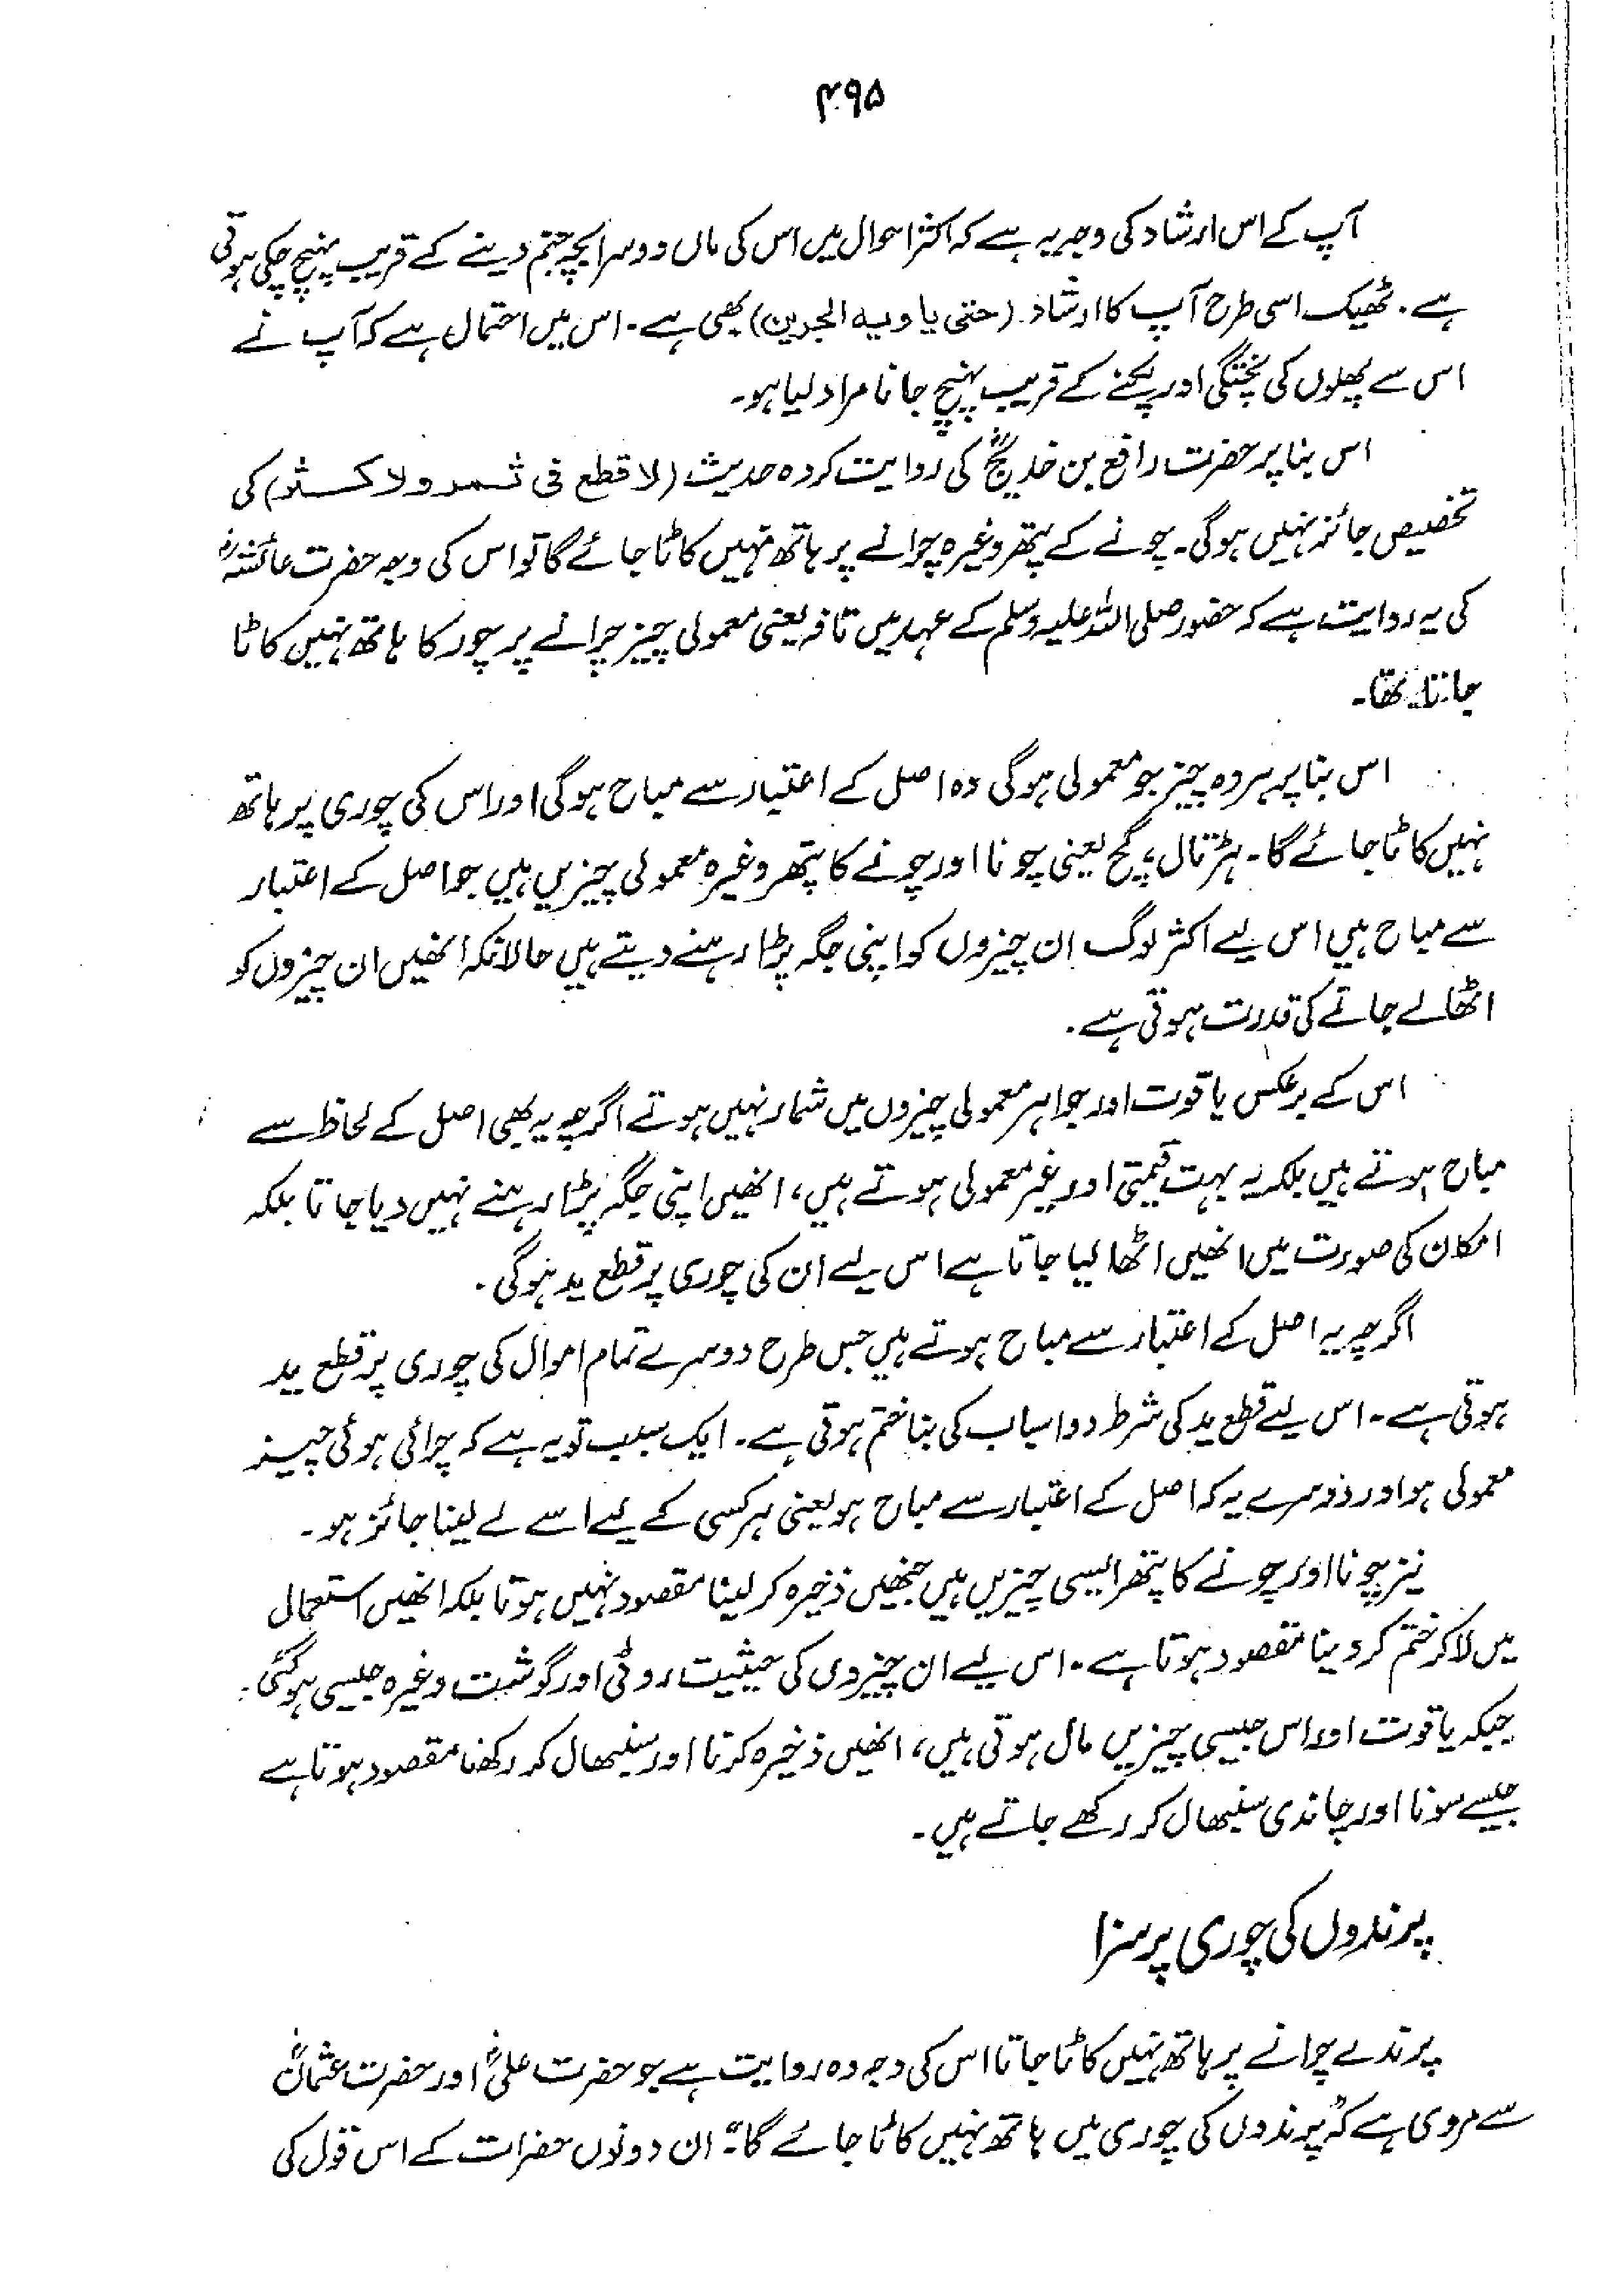 ۴۹۵
آپ کے اس ارشاد کی وجہ یہ ہے کہ اکثر احوال میں اس کی ماں دوسرا بچہ جنم دینے کے قریب پہنچ چکی ہوتی
ہے۔ ٹھیک اسی طرح آپ کا ارشاد (حتی یاویہ الجرین) بھی ہے۔ اس میں احتمال ہے کہ آپ نے
اس سے پھلوں کی پختگی اور پکنے کے قریب پہنچ جانا مراد لیا ہو۔
اس بنا پر حضرت رافع بن خدیجؓ کی روایت کردہ حدیث (لا قطع فی ثمر ولا کثر) کی
تخصیص جائز نہیں ہوگی۔ چونے کے پتھر وغیرہ چرانے پر ہاتھ نہیں کاٹا جائے گا تو اس کی وجہ حضرت عائشہؓ
کی یہ روایت ہے کہ حضور صلی اللہ علیہ وسلم کے عہد میں تافہ یعنی معمولی چیز چرانے پر چور کا ہاتھ نہیں کاٹا
جاتا تھا۔
اس بنا پر ہر وہ چیز جو معمولی ہوگی وہ اصل کے اعتبار سے مباح ہوگی اور اس کی چوری پر ہاتھ
نہیں کاٹا جائے گا۔ ہڑتال، گچ یعنی چونا اور چونے کا پتھر وغیرہ معمولی چیزیں ہیں جو اصل کے اعتبار
سے مباح ہیں اس لیے اکثر لوگ ان چیزوں کو اپنی جگہ پڑا رہنے دیتے ہیں حالانکہ انھیں ان چیزوں کو
اٹھا لے جانے کی قدرت ہوتی ہے۔
اس کے برعکس یاقوت اور جواہر معمولی چیزوں میں شمار نہیں ہوتے اگرچہ یہ بھی اصل کے لحاظ سے
مباح ہوتے ہیں بلکہ یہ بہت قیمتی اور غیر معمولی ہوتے ہیں، انھیں اپنی جگہ پڑا رہنے نہیں دیا جاتا بلکہ
امکان کی صورت میں انھیں اٹھا لیا جاتا ہے اس لیے ان کی چوری پر قطع ید ہوگی۔
اگرچہ یہ اصل کے اعتبار سے مباح ہوتے ہیں جس طرح دوسرے تمام اموال کی چوری پر قطع ید
ہوتی ہے۔ اس لیے قطع ید کی شرط دو اسباب کی بنا ختم ہوتی ہے۔ ایک سبب تو یہ ہے کہ چرائی ہوئی چیز
معمولی ہو اور دوسرے یہ کہ اصل کے اعتبار سے مباح ہو یعنی ہر کسی کے لیے اسے لے لینا جائز ہو۔
نیز چونا اور چونے کا پتھر ایسی چیزیں ہیں جنھیں ذخیرہ کر لینا مقصود نہیں ہوتا بلکہ انھیں استعمال
میں لا کر ختم کر دینا مقصود ہوتا ہے۔ اس لیے ان چیزوں کی حیثیت روٹی اور گوشت وغیرہ جیسی ہوگئی۔
جبکہ یاقوت اور اس جیسی چیزیں مال ہوتی ہیں، انھیں ذخیرہ کرنا اور سنبھال کر رکھنا مقصود ہوتا ہے
جیسے سونا اور چاندی سنبھال کر رکھے جاتے ہیں۔
پرندوں کی چوری پر سزا
پرندے چرانے پر ہاتھ نہیں کاٹا جاتا اس کی وجہ وہ روایت ہے جو حضرت علیؓ اور حضرت عثمانؓ
سے مروی ہے کہ "پرندوں کی چوری میں ہاتھ نہیں کاٹا جائے گا"۔ ان دونوں حضرات کے اس قول کی